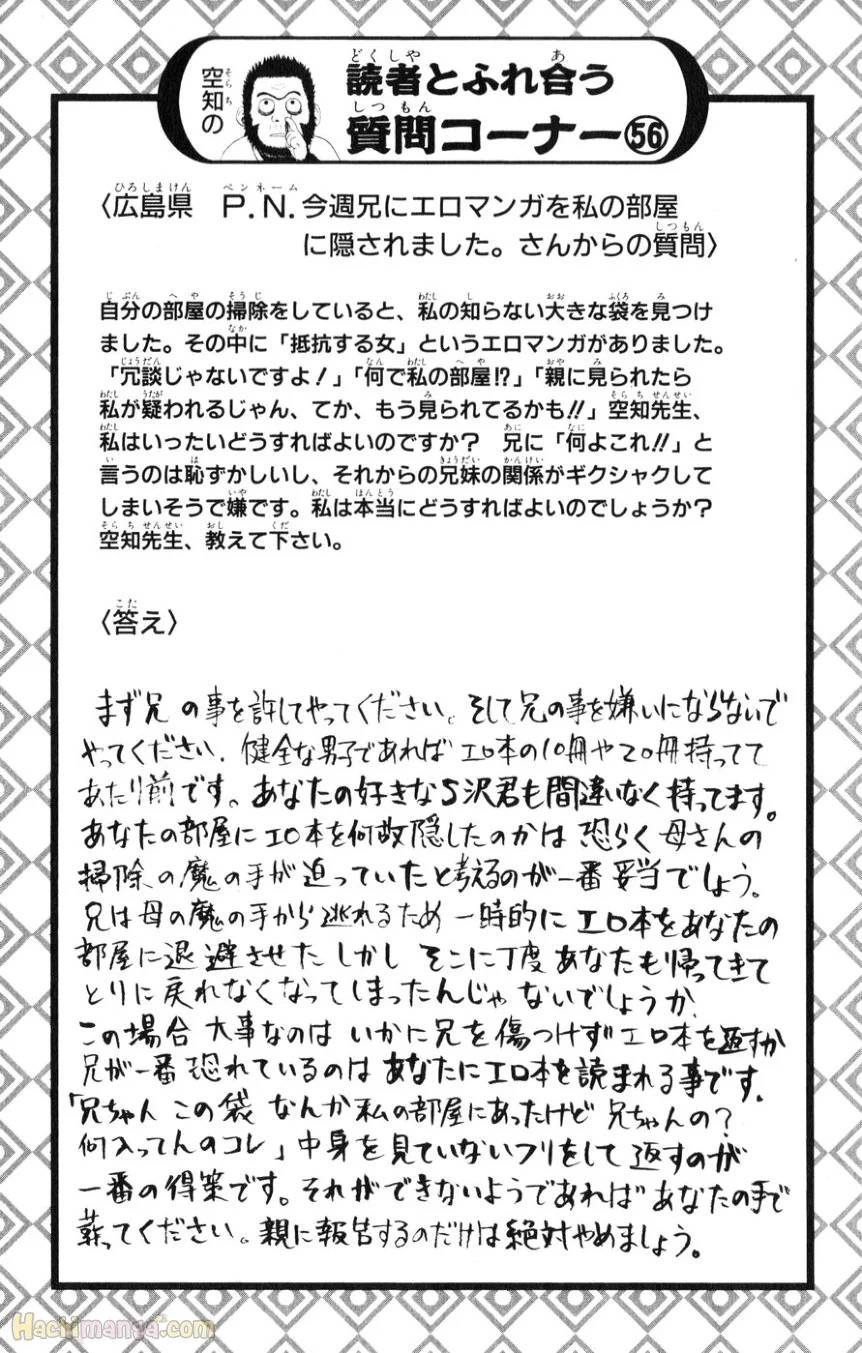 空知の
読者とふれ合う
質問コーナー56
〈広島県　P.N.今週兄にエロマンガを私の部屋
に隠されました。さんからの質問〉
自分の部屋の掃除をしていると、私の知らない大きな袋を見つけ
ました。その中に「抵抗する女」というエロマンガがありました。
「冗談じゃないですよ！」「何で私の部屋!?」「親に見られたら
私が疑われるじゃん、てか、もう見られてるかも!!」空知先生、
私はいったいどうすればよいのですか？　兄に「何よこれ!!」と
言うのは恥ずかしいし、それからの兄妹の関係がギクシャクして
しまいそうで嫌です。私は本当にどうすればよいのでしょうか？
空知先生、教えて下さい。
〈答え〉
まず兄の事を許してやってください。そして兄の事を嫌いにならないで
やってください。健全な男子であればエロ本の10冊や20冊持ってて
あたり前です。あなたの好きなS沢君も間違いなく持ってます。
あなたの部屋にエロ本を何故隠したのかは恐らく母さんの
掃除の魔の手が迫っていたと考えるのが一番妥当でしょう。
兄は母の魔の手から逃れるため一時的にエロ本をあなたの
部屋に退避させたしかしそこに丁度あなたも帰ってきて
とりに戻れなくなってしまったんじゃないでしょうか。
この場合大事なのはいかに兄を傷つけずエロ本を返すか
兄が一番恐れているのはあなたにエロ本を読まれる事です。
「兄ちゃんこの袋なんか私の部屋にあったけど兄ちゃんの？
何入ってんのコレ」中身を見ていないフリをして返すのが
一番の得策です。それができないようであればあなたの手で
葬ってください。親に報告するのだけは絶対やめましょう。
Hachimanga.com